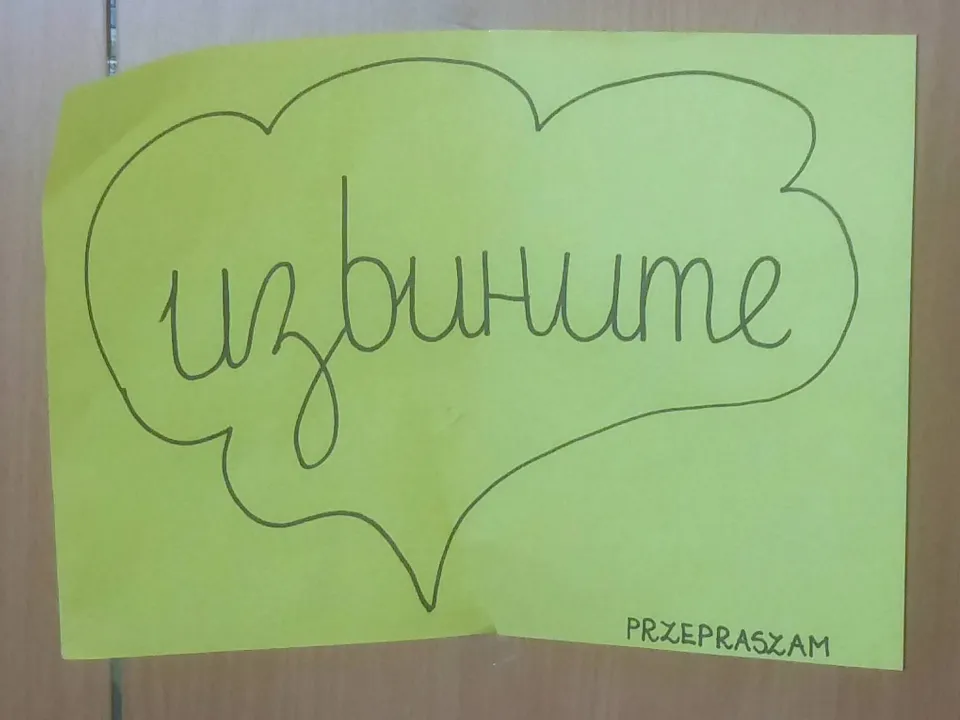 извините
PRZEPRASZAM